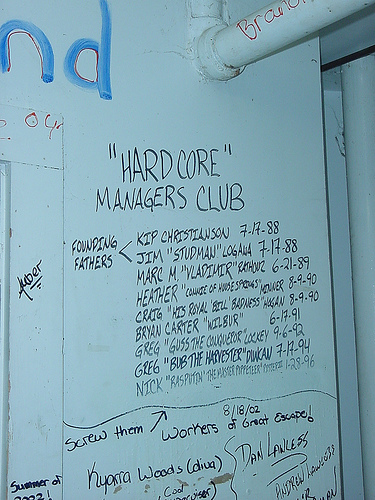 nd
Brand
"HARD CORE"
MANAGERS CLUB
FOUNDING
FATHERS
KIP CHRISTIANSON 7-17-88
JIM "STUDMAN" LOGANA 7-17-88
MARC M. "VLADIMIR" RATHOUZ 6-21-89
HEATHER "CONNIE OF HOUSE SPRINGS" 8-9-90
CRAIG "HIS ROYAL 'BILL' BADNESS" HOGAN 8-9-90
BRYAN CARTER "WILBUR" 6-17-91
GREG "GUSS THE CONDUCTOR" LOCKEY 9-6-92
GREG "BUB THE HARVESTER" DUNCAN 7-17-94
NICK "RASPUTIN" "THE MASTER PUPPETEER" 1-28-96
Amber
8/18/02
Screw them Workers of Great Escape!
Kyarra Woods (diva)
DAN LAWLESS
Summer of
2002!
Cool
ANDREW LAWLESS